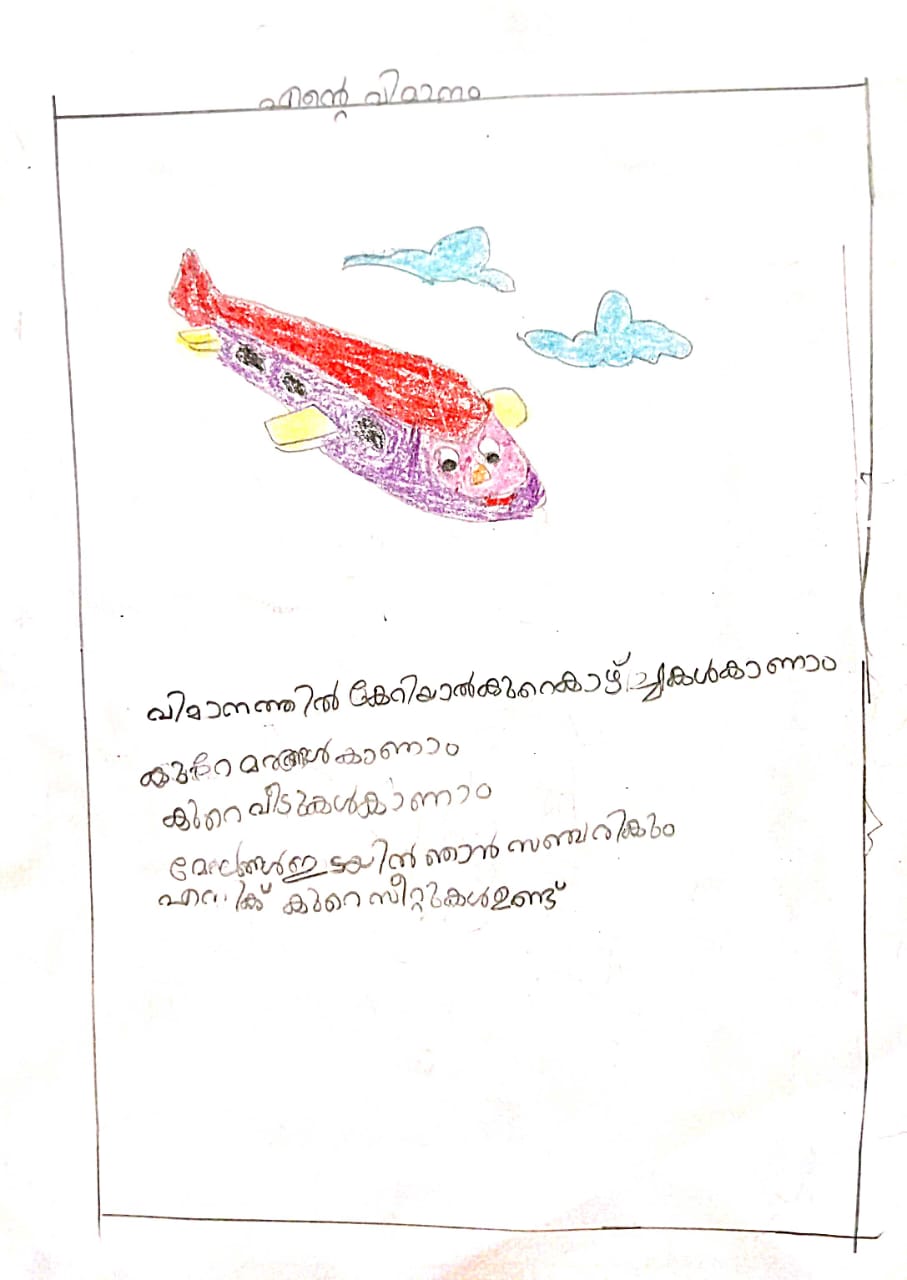 എന്റെ വിമാനം
വിമാനത്തിൽ കേറിയാൽകുറെകാഴ്ച്ചകൾകാണാം
കുറേ മരങ്ങൾകാണാം
കുറെ വീടുകൾകാണാം
മേഘങ്ങൾഇടയിൽ ഞാൻ സഞ്ചരികും
എനിക്ക് കുറെ സീറ്റുകൾഉണ്ട്